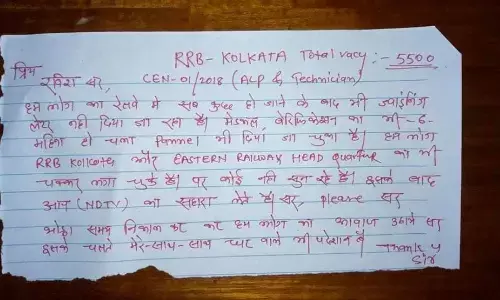 RRB-KOLKATA Total vacy :- 5500
प्रिय
रविश सर, CEN-01/2018 (ALP & Technician)
हम लोग का रेलवे मे सब कुछ हो जाने के बाद भी ज्वाइनिंग
लेटर नही दिया जा रहा है। मेडिकल, वेरिफिकेशन का भी -6-
महिना हो चला Pannel भी दिया जा चुका है। हम लोग
RRB Kolkata और EASTERN RAILWAY HEAD quarter का भी
चक्कर लगा चुके है। पर कोई नही सुन रहे है। इसके बाद
आप (NDTV) का सहारा लेते है। सर, please सर
थोड़ा समय निकाल कर हम लोग का आवाज उठाये सर
इसके चलते मेरे-साथ-साथ घर वाले भी परेशान है
Thank y
Sir